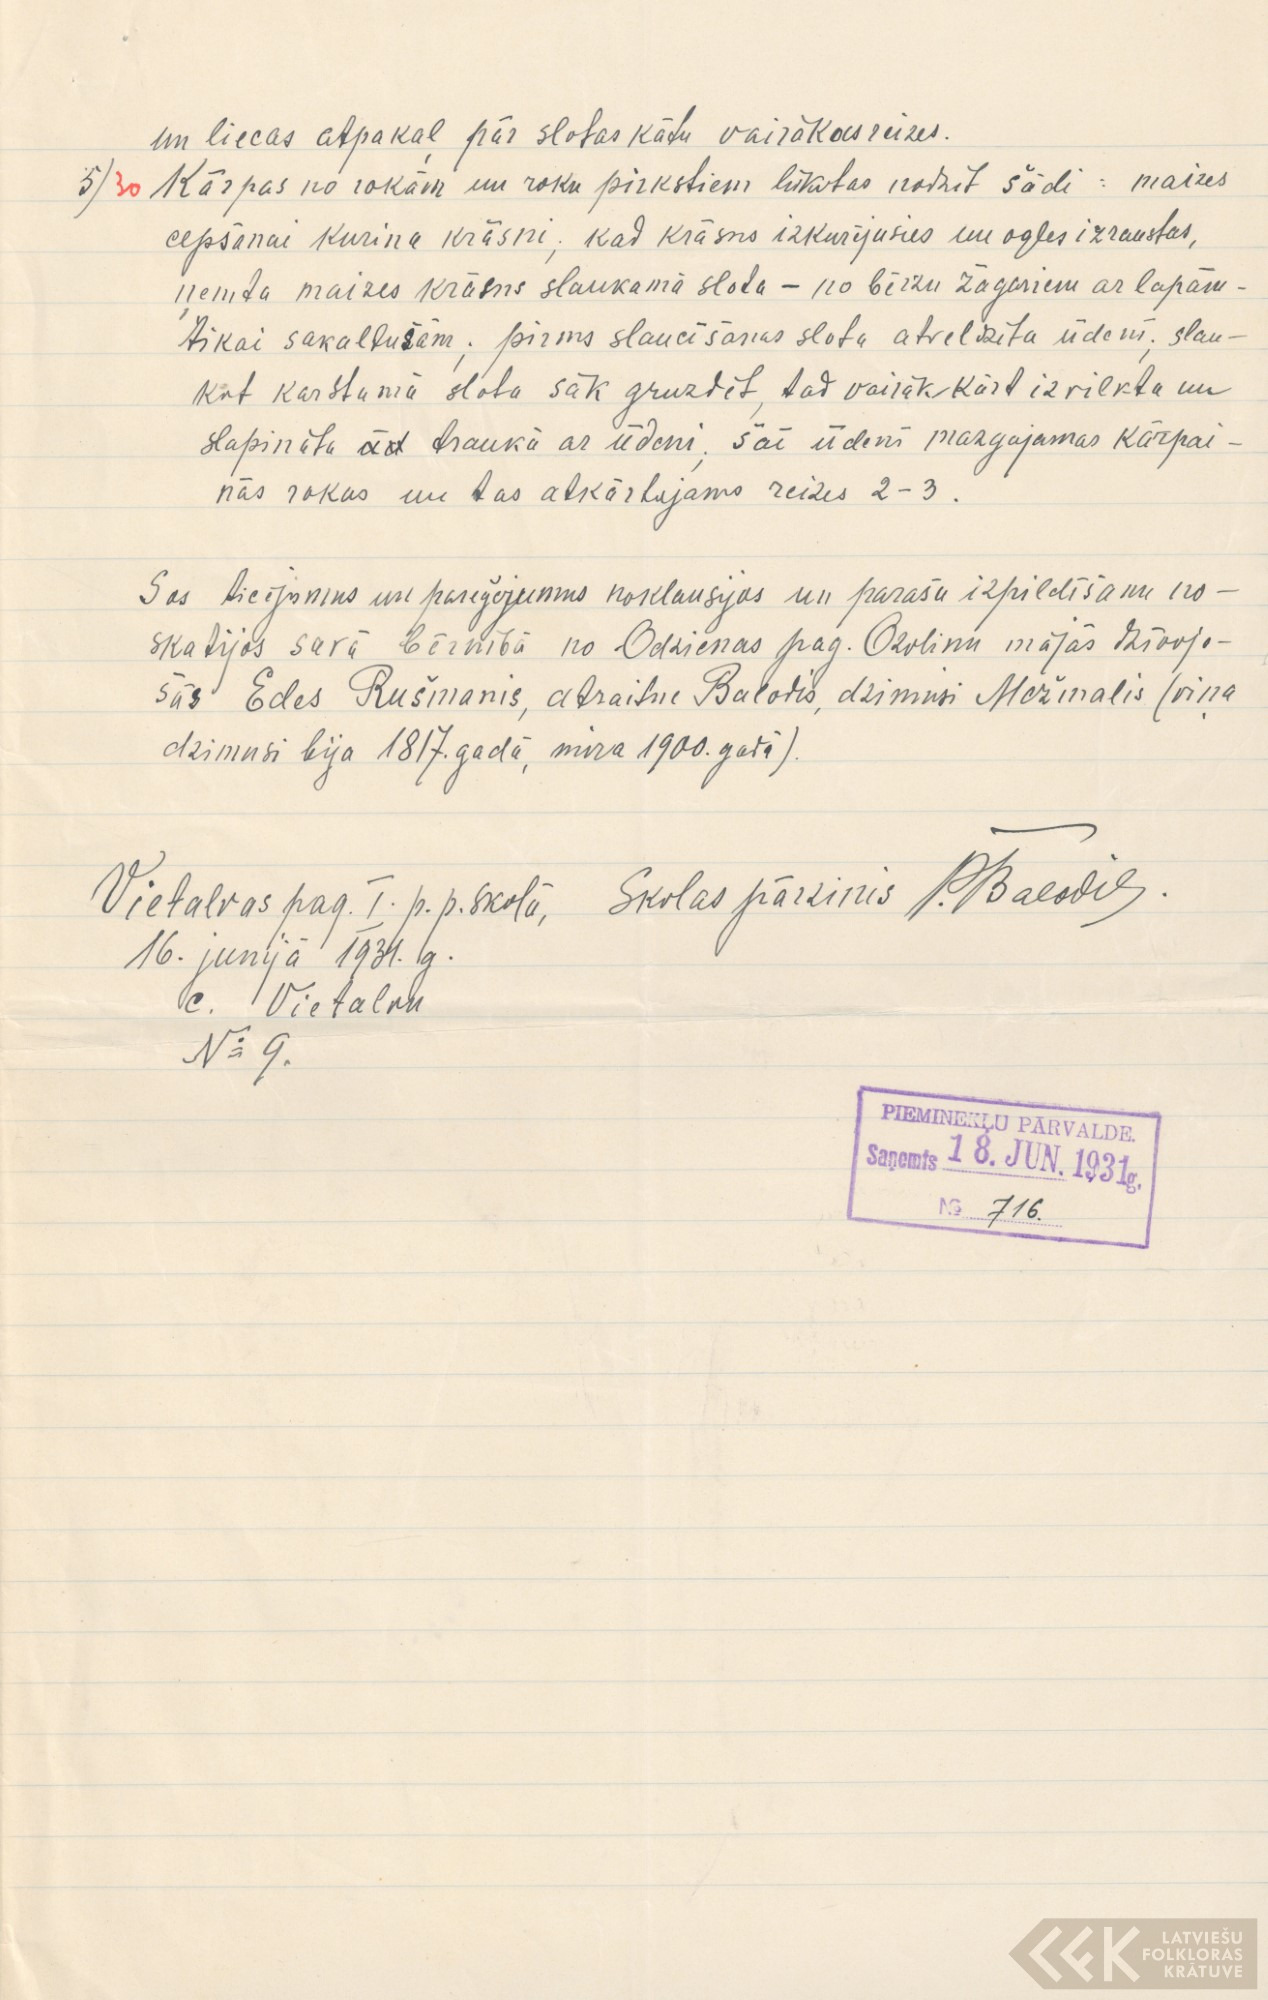 un liecas atpakaļ pār slotas kātu vairākas reizes.
5) 30 Kārpas no rokām un roku pirkstiem lūkotas nodzīt šādi: maizes
cepšanai kurina krāsni; kad krāsns izkurējusies un ogles izraustas,
ņemta maizes krāsns slaukamā slota – no bērzu žagariem ar lapām –
tikai sakaltušām; pirms slaucīšanas slota atveldzēta ūdenī; slau-
kot karstumā slota sāk gruzdēt, tad vairākkārt izvilkta un
slapināta traukā ar ūdeni; šai ūdenī mazgājamas kārpai-
nās rokas un tas atkārtojams reizes 2–3.
Šos ticējumus un pareģojumus noklausījos un parašu izpildīšanu no-
skatījos savā bērnībā no Odzienas pag. Ozoliņu mājās dzīvojo-
šās Edes Rušmanis, atraitne Balodis, dzimusi Mežmalis (viņa
dzimusi bija 1817. gadā, mira 1900. gadā).
Vietalvas pag. I. p. p. skolā, Skolas pārzinis P. Balodis.
16. junijā 1931. g.
c. Vietalvu
№ 9.
PIEMINEKĻU PĀRVALDE.
Saņemts 18. JUN. 1931 g.
№ 716.
LATVIEŠU
FOLKLORAS
KRĀTUVE